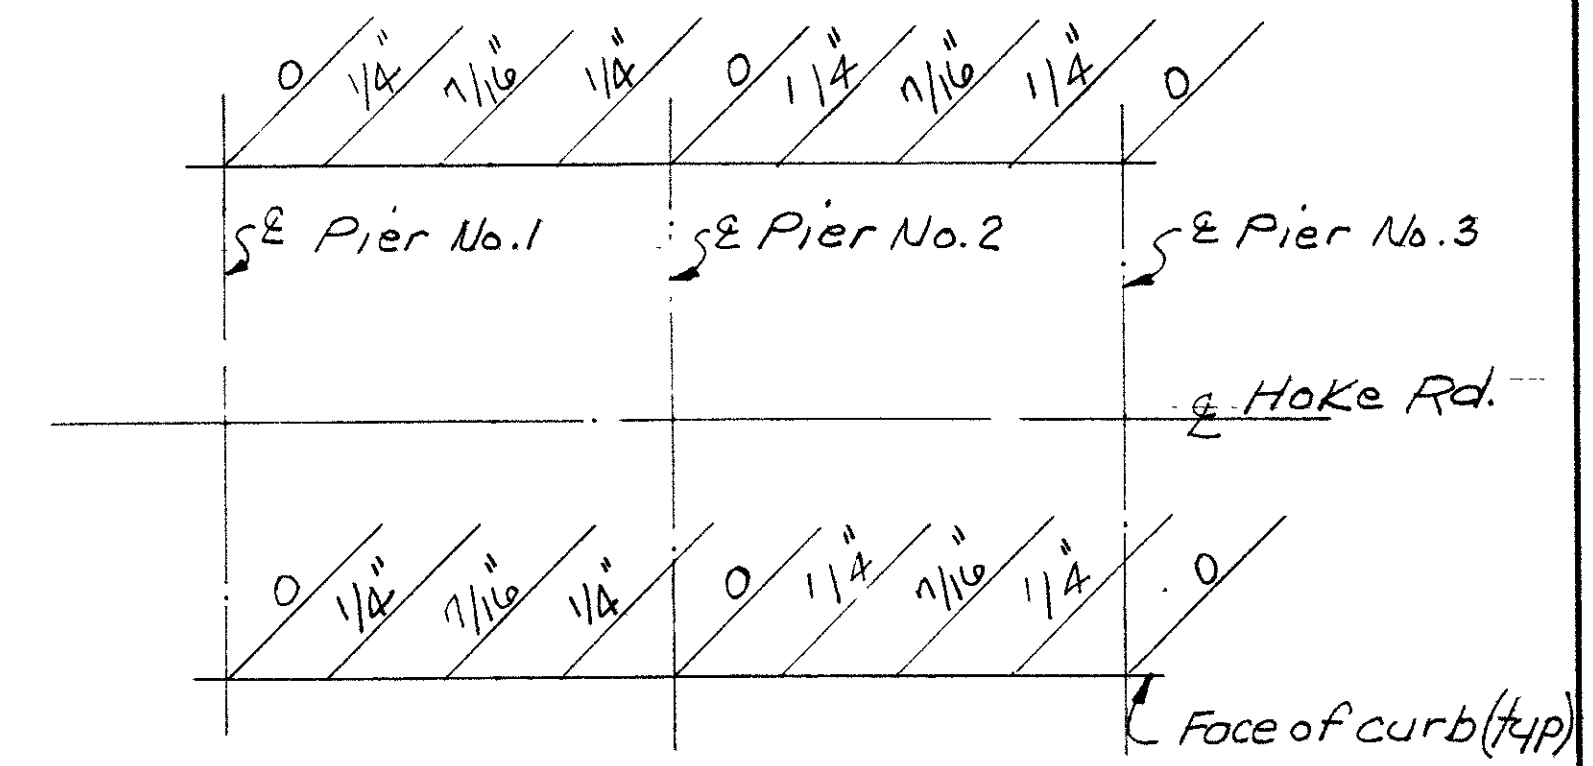 0 1/4" 7/16" 1/4" 0 1/4" 7/16" 1/4" 0
℄ Pier No.1 ℄ Pier No.2 ℄ Pier No.3
℄ Hoke Rd.
0 1/4" 7/16" 1/4" 0 1/4" 7/16" 1/4" 0
Face of curb (typ)